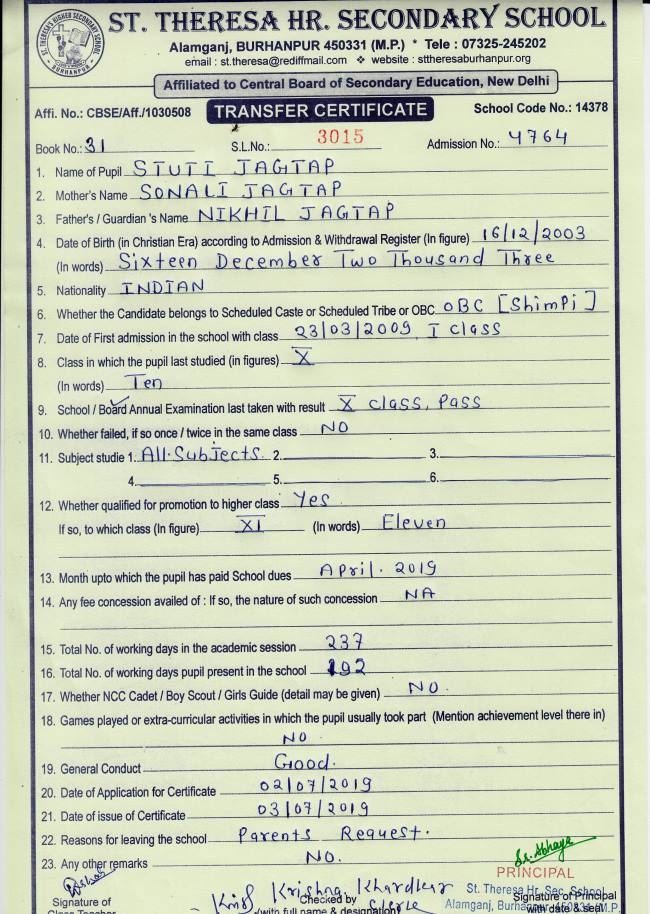 ST. THERESA HR. SECONDARY SCHOOL
Alamganj, BURHANPUR 450331 (M.P.) * Tele : 07325-245202
email : st.theresa@rediffmail.com ❖ website : sttheresaburhanpur.org
Affiliated to Central Board of Secondary Education, New Delhi
Affi. No.: CBSE/Aff./1030508 TRANSFER CERTIFICATE School Code No.: 14378
Book No.: 31 S.L.No.: 3015 Admission No.: 4764
1. Name of Pupil STUTI JAGTAP
2. Mother's Name SONALI JAGTAP
3. Father's / Guardian 's Name NIKHIL JAGTAP
4. Date of Birth (in Christian Era) according to Admission & Withdrawal Register (In figure) 16/12/2003
(In words) Sixteen December Two Thousand Three
5. Nationality INDIAN
6. Whether the Candidate belongs to Scheduled Caste or Scheduled Tribe or OBC OBC [Shimpi]
7. Date of First admission in the school with class 23/03/2009, I class
8. Class in which the pupil last studied (in figures) X
(In words) Ten
9. School / Board Annual Examination last taken with result X class, Pass
10. Whether failed, if so once / twice in the same class NO
11. Subject studie 1. All Subjects 2. 3.
4. 5. 6.
12. Whether qualified for promotion to higher class Yes
If so, to which class (In figure) XI (In words) Eleven
13. Month upto which the pupil has paid School dues April. 2019
14. Any fee concession availed of : If so, the nature of such concession NA
15. Total No. of working days in the academic session 237
16. Total No. of working days pupil present in the school 192
17. Whether NCC Cadet / Boy Scout / Girls Guide (detail may be given) NO.
18. Games played or extra-curricular activities in which the pupil usually took part (Mention achievement level there in)
NO
19. General Conduct Good.
20. Date of Application for Certificate 02/07/2019
21. Date of issue of Certificate 03/07/2019
22. Reasons for leaving the school Parents Request.
23. Any other remarks NO.
Sr. Abhaya
PRINCIPAL
Krishna Khardkar
St. Theresa Hr. Sec. School
Signature of Checked by Signature of Principal
Alamganj, Burhanpur 450331 M.P.
Class Teacher (with full name & designation) Clerk with date & seal